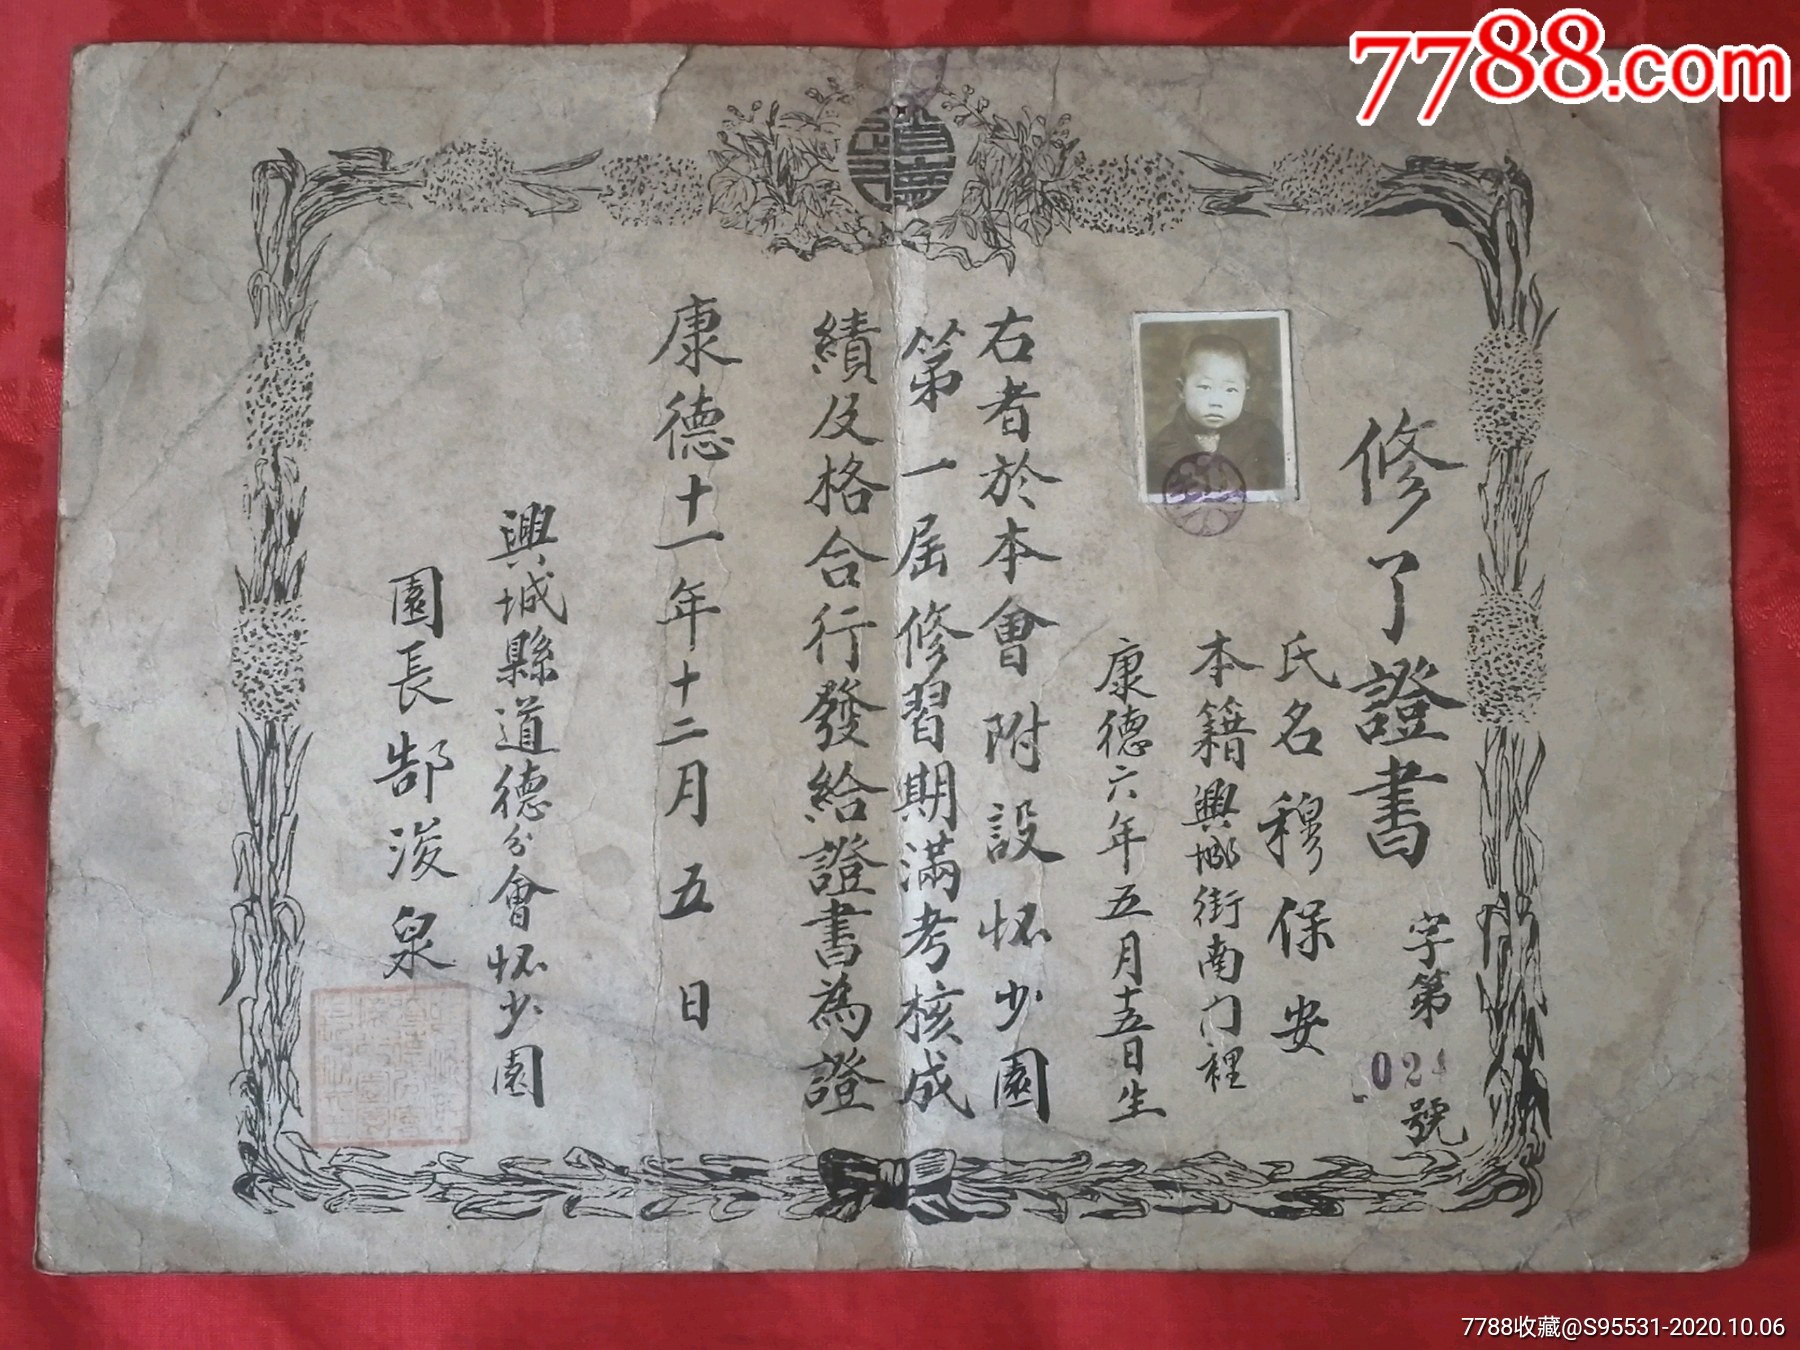 7788.com
修了證書
字第024號
氏名穆保安
本籍興城街南门裡
康德六年五月十五日生
右者於本會附設怀少園
第一屆修習期滿考核成
績及格合行發給證書為證
康德十一年十二月五日
興城縣道德分會怀少園
園長郜浚泉
7788收藏@S95531-2020.10.06